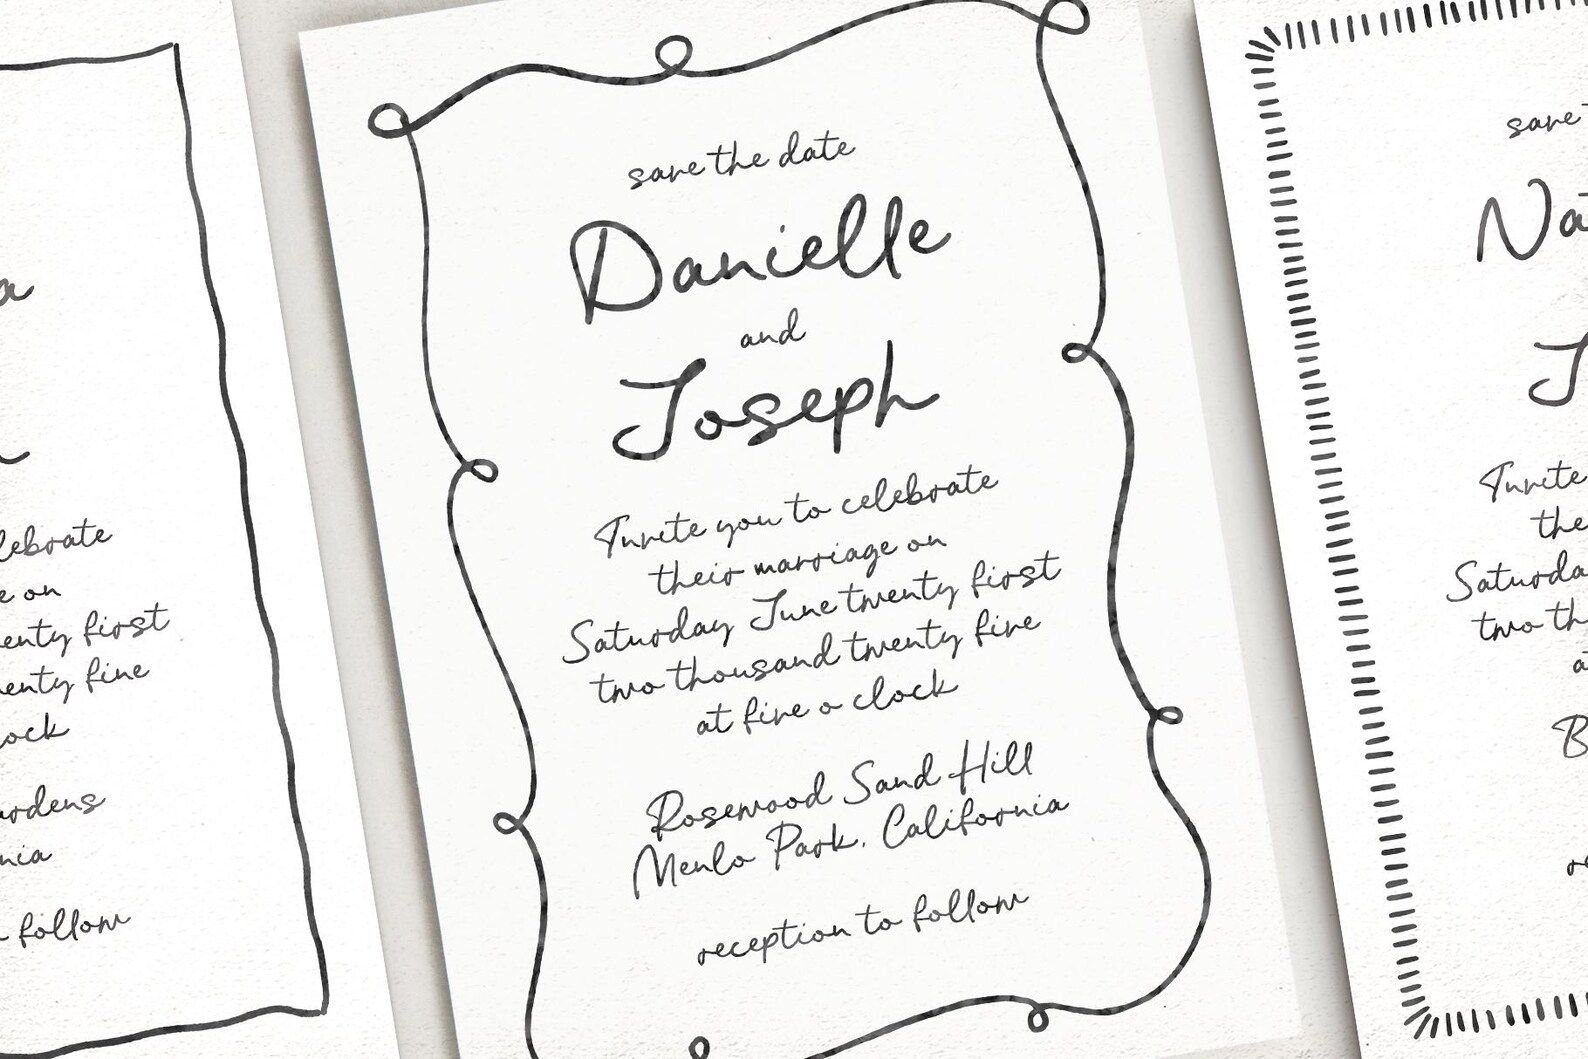 a
lebrate
e on
enty first
enty fine
ock
ardens
nia
follow
save the date
Danielle
and
Joseph
Invite you to celebrate
their marriage on
Saturday June twenty first
two thousand twenty five
at five o clock
Rosewood Sand Hill
Menlo Park, California
reception to follow
save
Nat
J
Invite
the
Saturda
two th
a
B
re